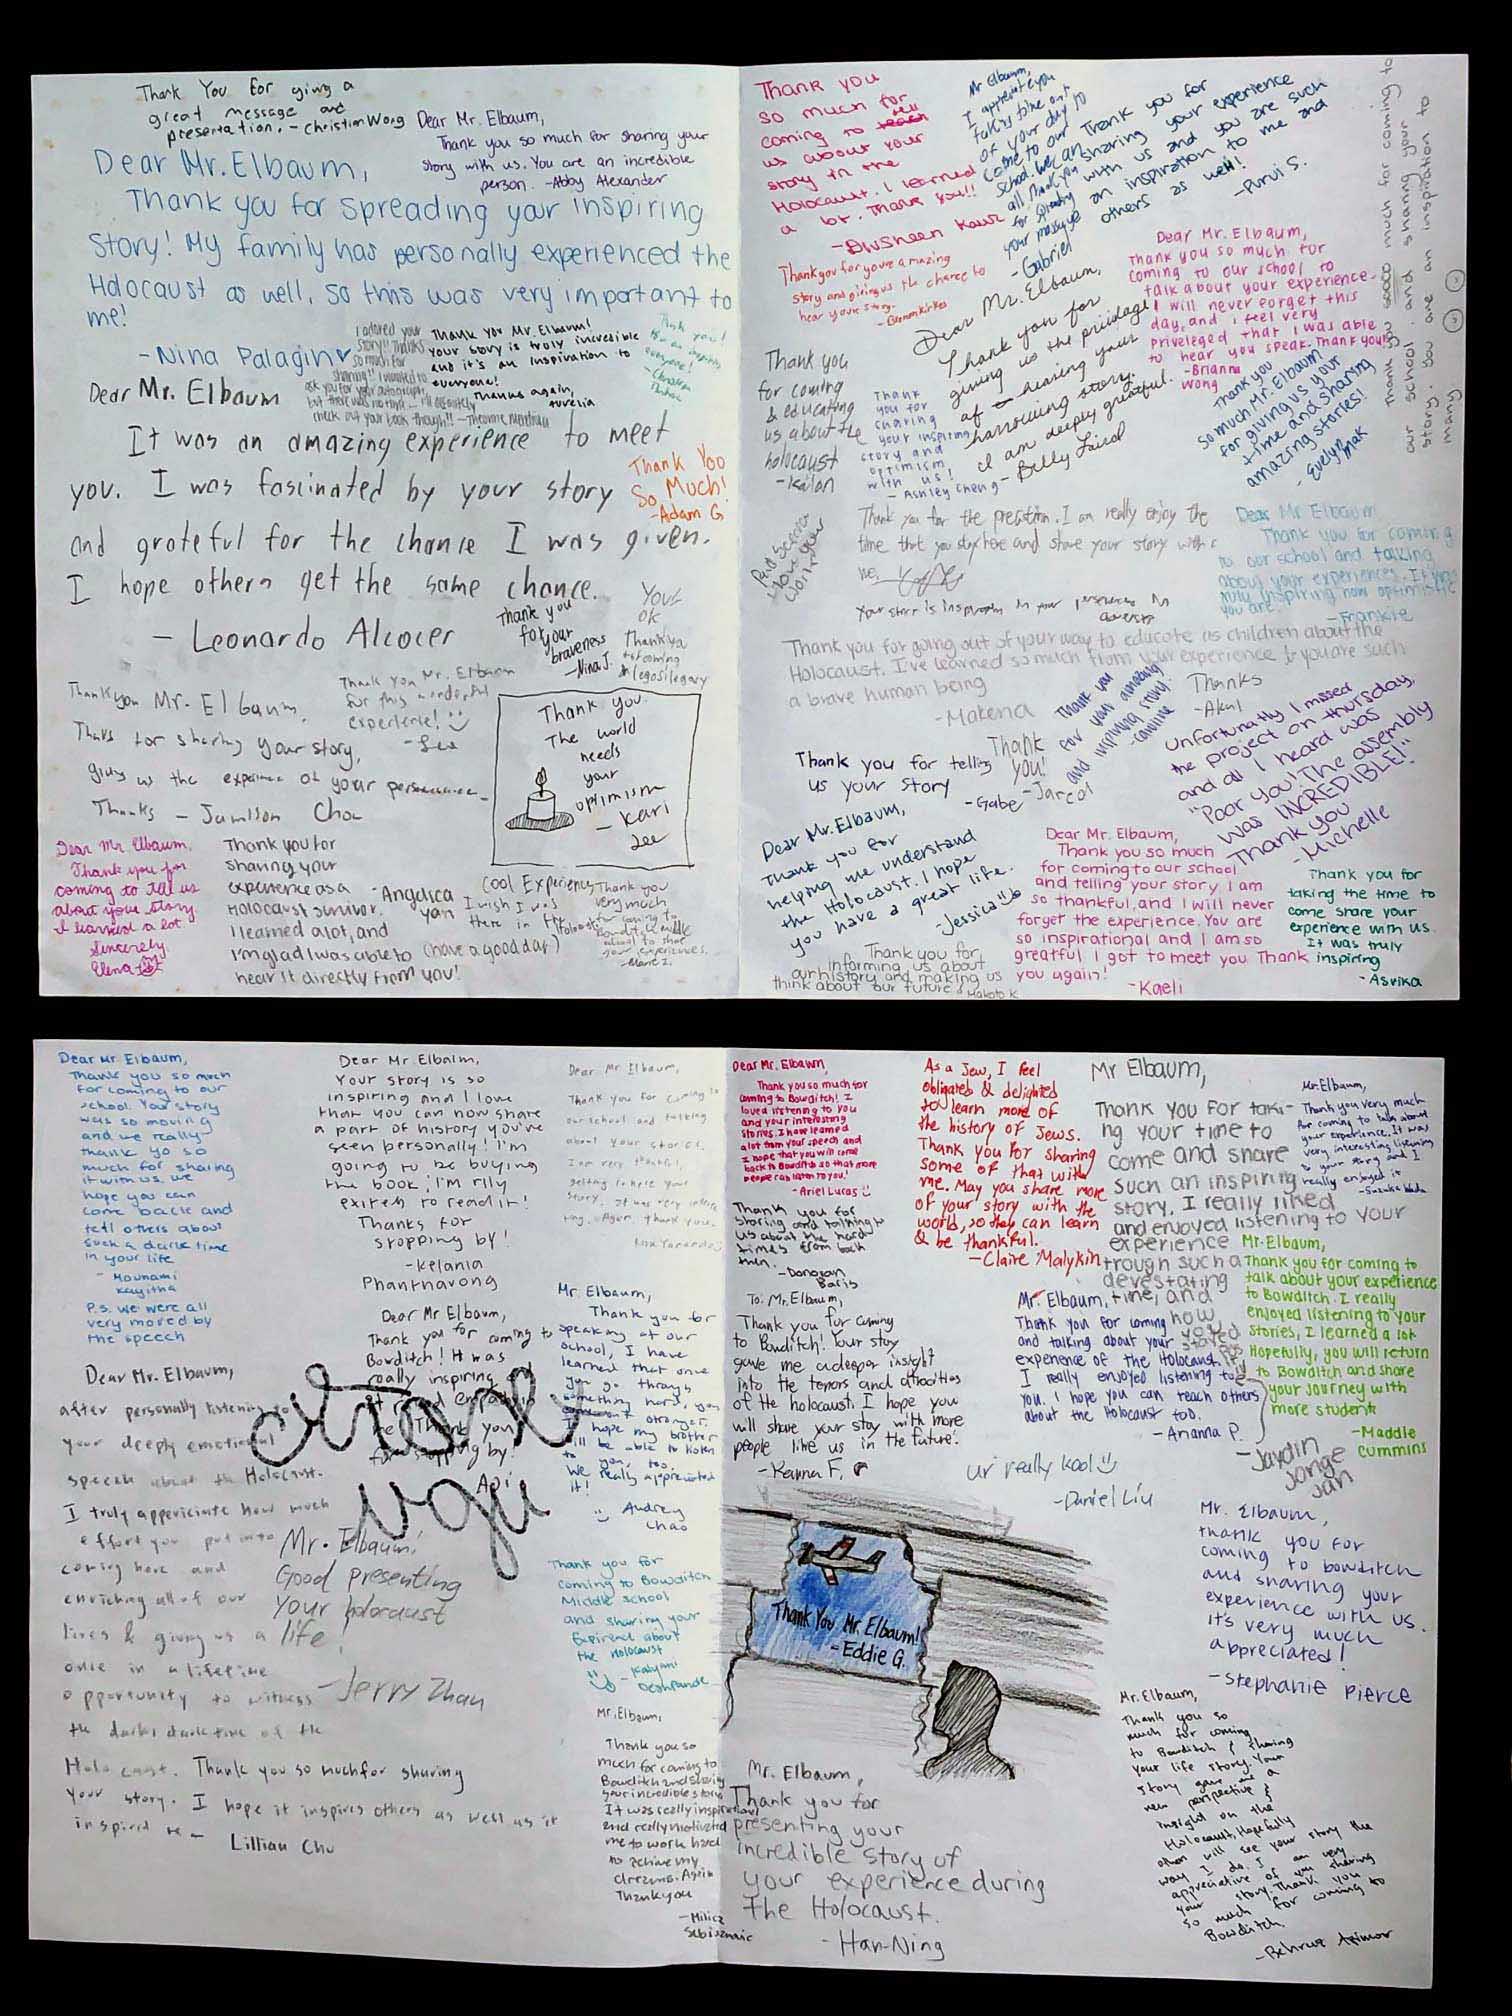 Thank You For giving a
great message and
presentation. - Christian Wong
Dear Mr. Elbaum,
Thank you so much for sharing your
story with us. You are an incredible
person. -Abby Alexander
Dear Mr. Elbaum,
Thank you for spreading your inspiring
story! My family has personally experienced the
Holocaust as well, so this was very important to
me!
- Nina Palagin
I adored your
story!! Thanks
so much for
sharing!! I wanted to
ask you for your autograph,
but there was no time... I'll definitely
check out your book though!!
Thank you Mr. Elbaum!
your story is truly incredible
and it's an inspiration to
everyone!
Thanks again,
Aurelia
Dear Mr. Elbaum
It was an amazing experience to meet
you. I was fascinated by your story
and grateful for the chance I was given.
I hope others get the same chance.
- Leonardo Alcocer
Thank You
So Much!
-Adam G
Thank you
for your
braveness
-Nina J.
Thank ya
for coming
Thankyou Mr. Elbaum,
Thanks for sharing your story,
giving us the experience of your
Thanks - Jamison Chou
Thank You Mr. Elbaum
for this wonderful
experience!
Thank you.
The world
needs
your
optimism
- Kari
Lee
Dear Mr. Elbaum,
Thank you for
coming to tell us
about your story.
I learned a lot
Sincerely,
Elena
Thank you for
sharing your
experience as a
Holocaust survivor.
I learned a lot, and
I'm glad I was able to
hear it directly from you!
-Angelica
Yan
Cool Experience
I wish I was
there
(have a good day)
Thank you
very much
for coming to
Bowditch middle
school to share
your experiences.
Thank you
so much for
coming to tell
us about your
story in the
Holocaust. I learned
a lot. Thank you!!
Mr Elbaum,
I appreciate you
taking time out
of your day to
come to our
school. We can
all thank you
for spreading
your message
- Gabriel
Thank you for
sharing your experience
with us and you are such
an inspiration to me and
others as well!
-Purvi S.
Thank you soooo much for coming to
our school and sharing your
story. You are an inspiration to
many.
Thank you for youre amazing
story and giving us the chance to
hear your story.
Dear Mr. Elbaum,
Thank you for
giving us the priviledge
of hearing your
harrowing story.
I am deeply greatful.
Dear Mr. Elbaum,
Thank you so much for
coming to our school to
talk about your experience.
I will never forget this
day, and I feel very
priveleged that I was able
to hear you speak. Thank you!
- Brianna
Wong
Thank you
for coming
& educating
us about the
holocaust
Thank
you for
sharing
your inspiring
story and
optimism
with us!
- Ashley Cheng
Thank you
so much Mr. Elbaum
for giving us your
time and sharing
amazing stories!
- Evelyn
Mak
Thank you for the
I am really enjoy the
time that you stay here and share your story with
Dear Mr Elbaum
Thank you for coming
to our school and talking
about your experiences. It was
truly inspiring how optimistic
you are.
-Frankie
Thank you for going out of your way to educate us children about the
Holocaust. I've learned so much from your experience & you are such
a brave human being
-Makena
Thanks
- Akul
Thank you
for your amazing
and inspiring story
-Caroline
Unfortunately I missed
the project on thursday,
and all I heard was
"Poor you! The assembly
was INCREDIBLE!"
Thank you
-Michelle
Thank you for telling
us your story
-Gabe
Thank
you!
-Jarcol
Dear Mr. Elbaum,
Thank you for
helping me understand
the Holocaust. I hope
you have a great life.
-Jessica
Dear Mr. Elbaum,
Thank you so much
for coming to our school
and telling your story. I am
so thankful, and I will never
forget the experience. You are
so inspirational and I am so
greatful I got to meet you. Thank
you again!
-Kaeli
Thank you for
taking the time to
come share your
experience with us.
It was truly
inspiring
-Asvika
Thank you for
informing us about
our history and making us
think about our future
- Makoto K
Dear Mr. Elbaum,
Thank you so much
for coming to our
school. Your story
was so moving
and we really
thank yo so
much for sharing
it with us. We
hope you can
come back and
tell others about
such a dark time
in your life
- Mounami
Kayitha
P.S. we were all
very moved by
the speech
Dear Mr. Elbaum,
Your story is so
inspiring and I love
that you can now share
a part of history you've
seen personally! I'm
going to be buying
the book; I'm rlly
exited to read it!
Thanks for
stopping by!
-Kelania
Phanthavong
Dear Mr Elbaum,
Thank you for coming to
our school and talking
about your stories.
I am very thankful,
Dear Mr Elbaum,
Thank you for coming to
Bowditch! It was
really inspiring
Thank you
for stopping by!
Mr. Elbaum,
Thank you for
speaking at our
school, I have
learned that once
you go through
something hard, you
stronger.
I hope my brother
will be able to listen
to you, too.
We really appreciated
it!
Audrey
Chao
Dear Mr. Elbaum,
after personally listening to
your deeply emotional
speech about the Holocaust.
I truly appriciate how much
effort you put into
coming here and
enriching all of our
lives & giving us a
once in a lifetime
opportunity to witness
the darkest time of the
Holocaust. Thank you so much for sharing
your story. I hope it inspires others as well as it
inspired me -
Lillian Chu
Mr. Elbaum,
Good presenting
your holocaust
life.
-Jerry Zhan
Thank you for
coming to Bowditch
Middle school
and sharing your
about
the Holocaust
- Kalyani
Deshpande
Mr. Elbaum,
Thank you so
much for coming to
Bowditch and sharing
your incredible story.
It was really inspirational
and really motivated
me to work hard
to achieve my
dreams. Again
Thank you
Dear Mr. Elbaum,
Thank you so much for
coming to Bowditch! I
loved listening to you
and your interesting
stories. I have learned
alot from your speech and
I hope that you will come
back to Bowditch so that more
people can listen to you!
-Ariel Lucas
As a Jew, I feel
obligated & delighted
to learn more of
the history of Jews.
Thank you for sharing
some of that with
me. May you share more
of your story with the
world, so they can learn
& be thankful.
-Claire Malykin
Mr Elbaum,
Thank you for taki-
ng your time to
come and share
such an inspiring
story. I really liked
and enjoyed listening to your
experience
trough such a
devestating
time, and
how
you
stayed
-Jaydin
Jonge
Jan
Mr. Elbaum,
Thank you very much
for coming to talk about
your experience. It was
very interesting listening
to your story and I
really enjoyed it
Thank you for
sharing and talking to
us about the hard
times from back
then.
-Donovan
Baris
To: Mr, Elbaum,
Thank you for coming
to Bowditch! Your story
gave me a deeper insight
into the terrors and atrocities
of the holocaust. I hope you
will share your story with more
people like us in the future!
-Kanna F.
Mr. Elbaum,
Thank you for coming
and talking about your
experience of the Holocaust.
I really enjoyed listening to
you. I hope you can teach others
about the Holocaust too.
-Arianna P.
Mr. Elbaum,
Thank you for coming to
talk about your experience
to Bowditch. I really
enjoyed listening to your
stories, I learned a lot
Hopefully, you will return
to Bowditch and share
your journey with
more students
-Maddie
Cummins
ur really kool
-Daniel Liu
Thank You Mr. Elbaum!
- Eddie G.
Mr. Elbaum,
thank you for
coming to bowditch
and sharing your
experience with us.
it's very much
appreciated!
-Stephanie Pierce
Mr. Elbaum,
Thank you for
presenting your
incredible story of
your experience during
the Holocaust.
- Han-Ning
Mr. Elbaum,
Thank you so
much for coming
to Bowditch & sharing
your life story. Your
story gave me a
new perspective &
insight on the
Holocaust. Hopefully
others will see your story the
way I do. I am very
appreciative of you sharing
your story. Thank you
so much for coming to
Bowditch